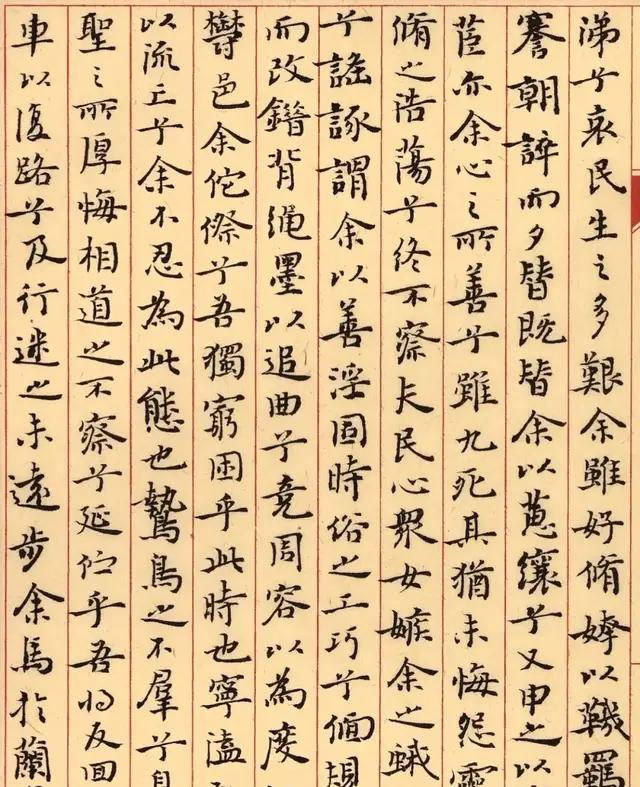 涕兮哀民生之多艱余雖好脩姱以鞿羈
謇朝誶而夕替既替余以蕙纕兮又申之以
茝亦余心之所善兮雖九死其猶未悔怨靈
脩之浩蕩兮終不察夫民心衆女嫉余之蛾
兮謠諑謂余以善淫固時俗之工巧兮偭規
而改錯背繩墨以追曲兮競周容以為度
鬱邑余侘傺兮吾獨窮困乎此時也寧溘
以流亡兮余不忍為此態也鷙鳥之不羣兮自
聖之所厚悔相道之不察兮延佇乎吾將反回
車以復路兮及行迷之未遠步余馬於蘭